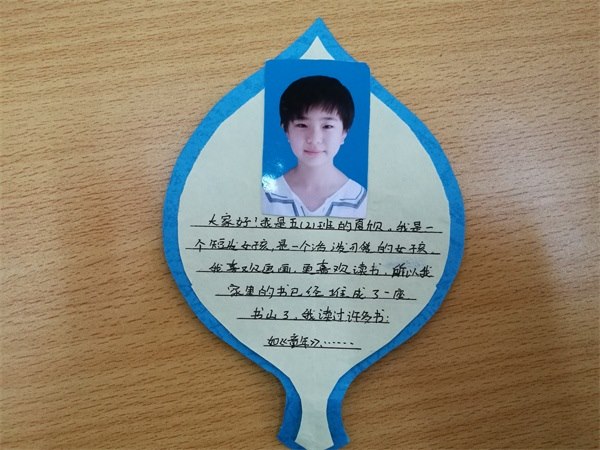 大家好!我是五(2)班的夏欣,我是一
个短发女孩,是一个活泼可爱的女孩
我喜欢画画,更喜欢读书,所以我
家里的书已经堆成了一座
书山了,我读过许多书:
如《童年》……